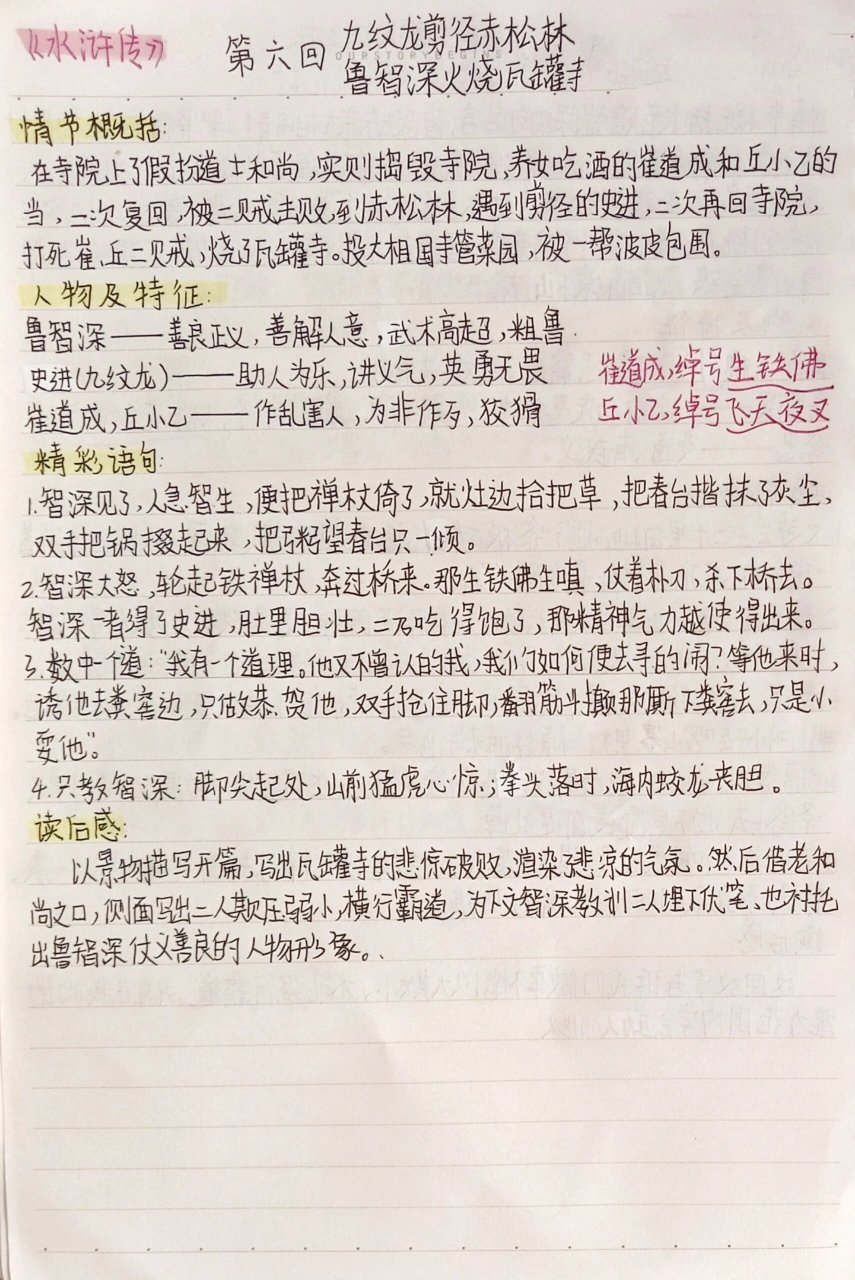 《水浒传》
第六回 九纹龙剪径赤松林
鲁智深火烧瓦罐寺
OURSTORYBEGINS
情节概括:
在寺院上了假扮道士和尚,实则捣毁寺院,养女吃酒的崔道成和丘小乙的
当,二次复回,被二贼击败,到赤松林,遇到剪径的史进,二次再回寺院,
打死崔、丘二贼,烧了瓦罐寺。投大相国寺管菜园,被一帮泼皮包围。
人物及特征:
鲁智深——善良正义,善解人意,武术高超,粗鲁.
史进(九纹龙)——助人为乐,讲义气,英勇无畏
崔道成,绰号生铁佛
崔道成,丘小乙——作乱害人,为非作歹,狡猾
丘小乙,绰号飞天夜叉
精彩语句:
1.智深见了,人急智生,便把禅杖倚了,就灶边拾把草,把春台揩抹了灰尘,
双手把锅掇起来,把粥望春台只一倾。
2.智深大怒,轮起铁禅杖,奔过桥来。那生铁佛生嗔,仗着朴刀,杀下桥去。
智深一者得了史进,肚里胆壮,二乃吃得饱了,那精神气力越使得出来。
3.数中一个道:“我有一个道理。他又不曾认的我,我们如何便去寻的闹?等他来时,
诱他去粪窖边,只做恭贺他,双手抢住脚,翻筋斗攧那厮下粪窖去,只是小
耍他”。
4.只教智深:脚尖起处,山前猛虎心惊;拳头落时,海内蛟龙丧胆。
读后感:
以景物描写开篇,写出瓦罐寺的悲惊破败,渲染了悲凉的气氛。然后借老和
尚之口,侧面写出二人欺压弱小,横行霸道,为下文智深教训二人埋下伏笔、也衬托
出鲁智深仗义善良的人物形象。